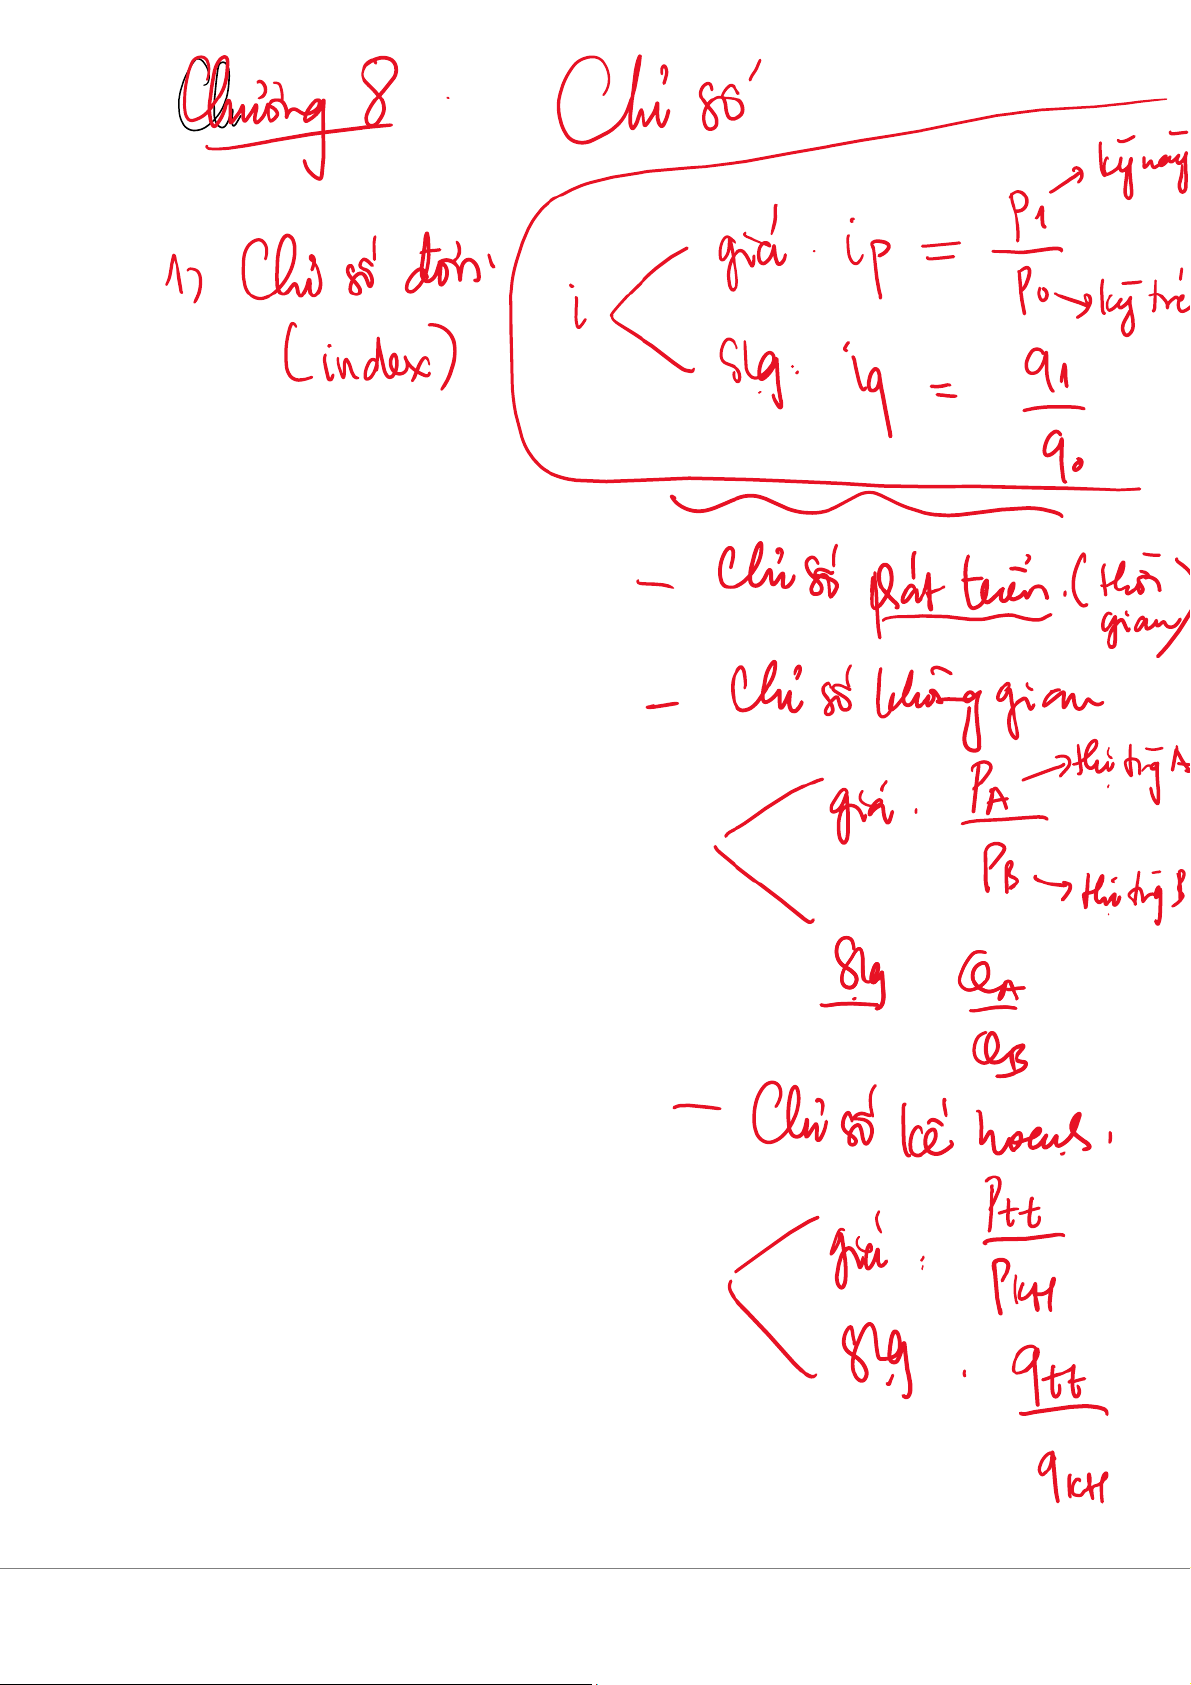 Chương 8. Chỉ số
1) Chỉ số đơn.
(index)
i
giá. ip = P1 / P0
→ kỳ này
→ kỳ trc
slg. iq = q1 / q0
- Chỉ số phát triển. (thời gian)
- Chỉ số không gian
giá. PA / PB
→ thị trg A
→ thị trg B
slg QA / QB
- Chỉ số kế hoạch.
giá: Ptt / PKH
slg. qtt / qKH